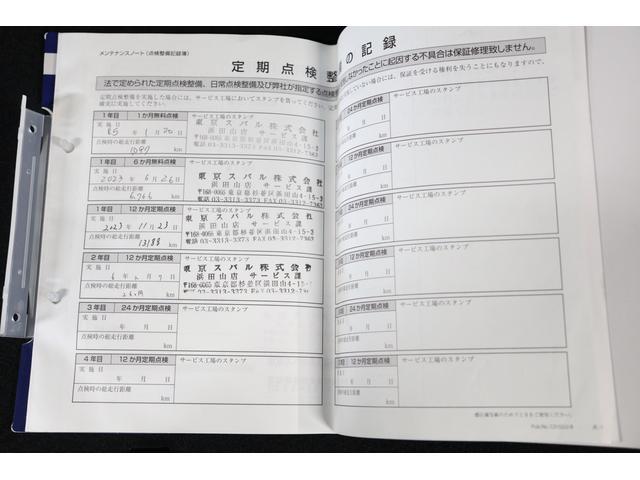 メンテナンスノート（点検整備記録簿）
定期点検整
の記録
法で定められた定期点検整備、日常点検整備及び弊社が指定する点検
しなかったことに起因する不具合は保証修理致しません。
定期点検整備を実施した場合には、サービス工場においてスタンプを貰ってください。
確実に実施してください。
していない場合には、保証を受ける権利を失うことにもなりますので、
1年目 1か月無料点検 サービス工場のスタンプ
実施日
R5年 1月 20日
点検時の総走行距離
1087 km
東京スバル株式会社
浜田山店 サービス課
〒168-0065 東京都杉並区浜田山4-15-2
1年目 6か月無料点検 サービス工場のスタンプ
実施日
2023年 6月 26日
点検時の総走行距離
6,766 km
東京スバル株式会社
浜田山店 サービス課
〒168-0065 東京都杉並区浜田山4-15-2
電話 03-3313-3373 FAX 03-3312-7963
1年目 12か月定期点検 サービス工場のスタンプ
実施日
2023年 11月 23日
点検時の総走行距離
13188 km
東京スバル株式会社
浜田山店 サービス課
〒168-0065 東京都杉並区浜田山4-15-2
電話 03-3313-3373 FAX 03-3312-7963
2年目 12か月定期点検 サービス工場のスタンプ
実施日
点検時の総走行距離
km
東京スバル株式会社
浜田山店 サービス課
〒168-0065 東京都杉並区浜田山4-15-
3年目 24か月定期点検 サービス工場のスタンプ
実施日
年 月 日
点検時の総走行距離
km
4年目 12か月定期点検 サービス工場のスタンプ
実施日
年 月 日
点検時の総走行距離
km
24か月定期点検 サービス工場のスタンプ
年 月 日
km
12か月定期点検 サービス工場のスタンプ
年 月 日
km
24か月定期点検 サービス工場のスタンプ
年 月 日
km
12か月定期点検 サービス工場のスタンプ
年 月 日
km
24か月定期点検 サービス工場のスタンプ
年 月 日
km
12か月定期点検 サービス工場のスタンプ
年 月 日
km